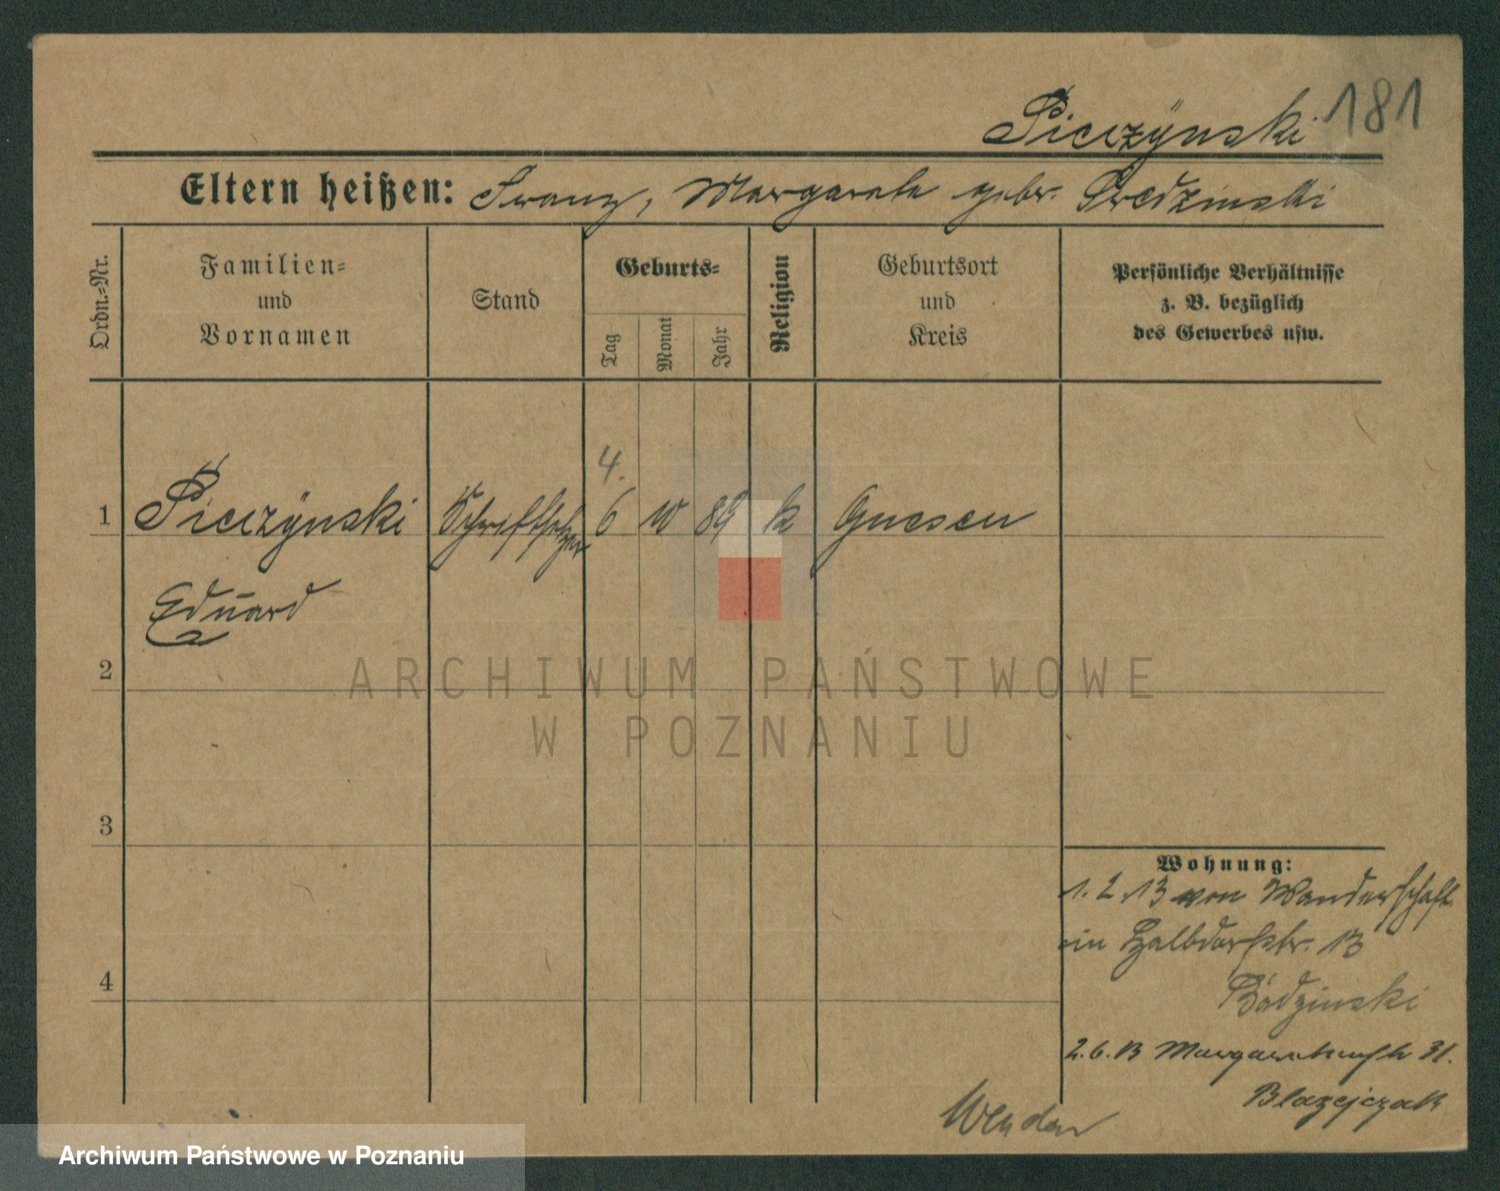 Pieczÿnski 181
Eltern heißen: Franz, Margarete gebr. Sredzinski
Ordn.=Nr.
Familien=
und
Vornamen
Stand
Geburts=
Tag
Monat
Jahr
Religion
Geburtsort
und
Kreis
Persönliche Verhältnisse
z. B. bezüglich
des Gewerbes usw.
4.
1 Pieczÿnski Schriftsetzer 6 10 89 k Gnesen
Eduard
2
ARCHIWUM PAŃSTWOWE
W POZNANIU
3
Wohnung:
1.2.13 von Wanderschaft
in Halbdorfstr. 13
4
Budzinski
2.6.13 Margaretenstr 31.
Blazejczak
Wenden
Archiwum Państwowe w Poznaniu